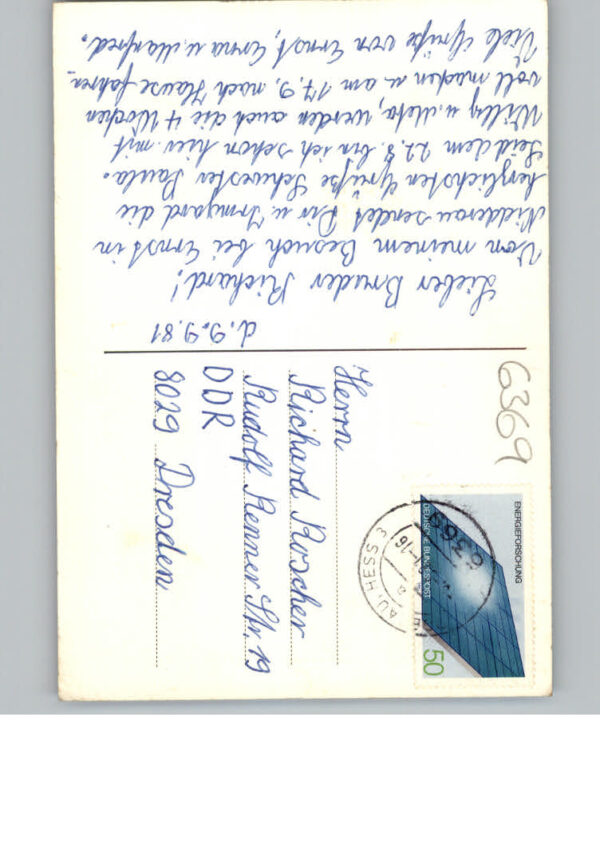 d. 9.9.81
Lieber Bruder Richard!
Von meinem Besuch bei Ernst in
Nidderau sendet Dir u. Irmgard die
herzlichsten Grüße Schwester Paula.
Seid dem 22.8. bin ich schon hier mit
Willy u. Meta, werden auch die 4 Wochen
voll machen u. am 17.9. nach Hause fahren.
Viele Grüße von Ernst, Erna u. Manfred.
6369
ENERGIEFORSCHUNG
DEUTSCHE BUNDESPOST
50
6369
-16
AU, HESS 3
a
Herrn
Richard Roscher
Rudolf Renner Str. 19
DDR
8029 Dresden